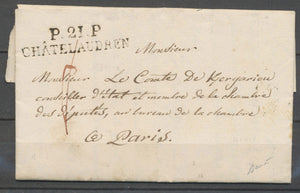 P. 21. P
CHÂTELAUDREN
Monsieur
Monsieur Le Comte De Kergariou
conseiller d'état et membre de la chambre
des députés, au bureau de la chambre
a Paris.